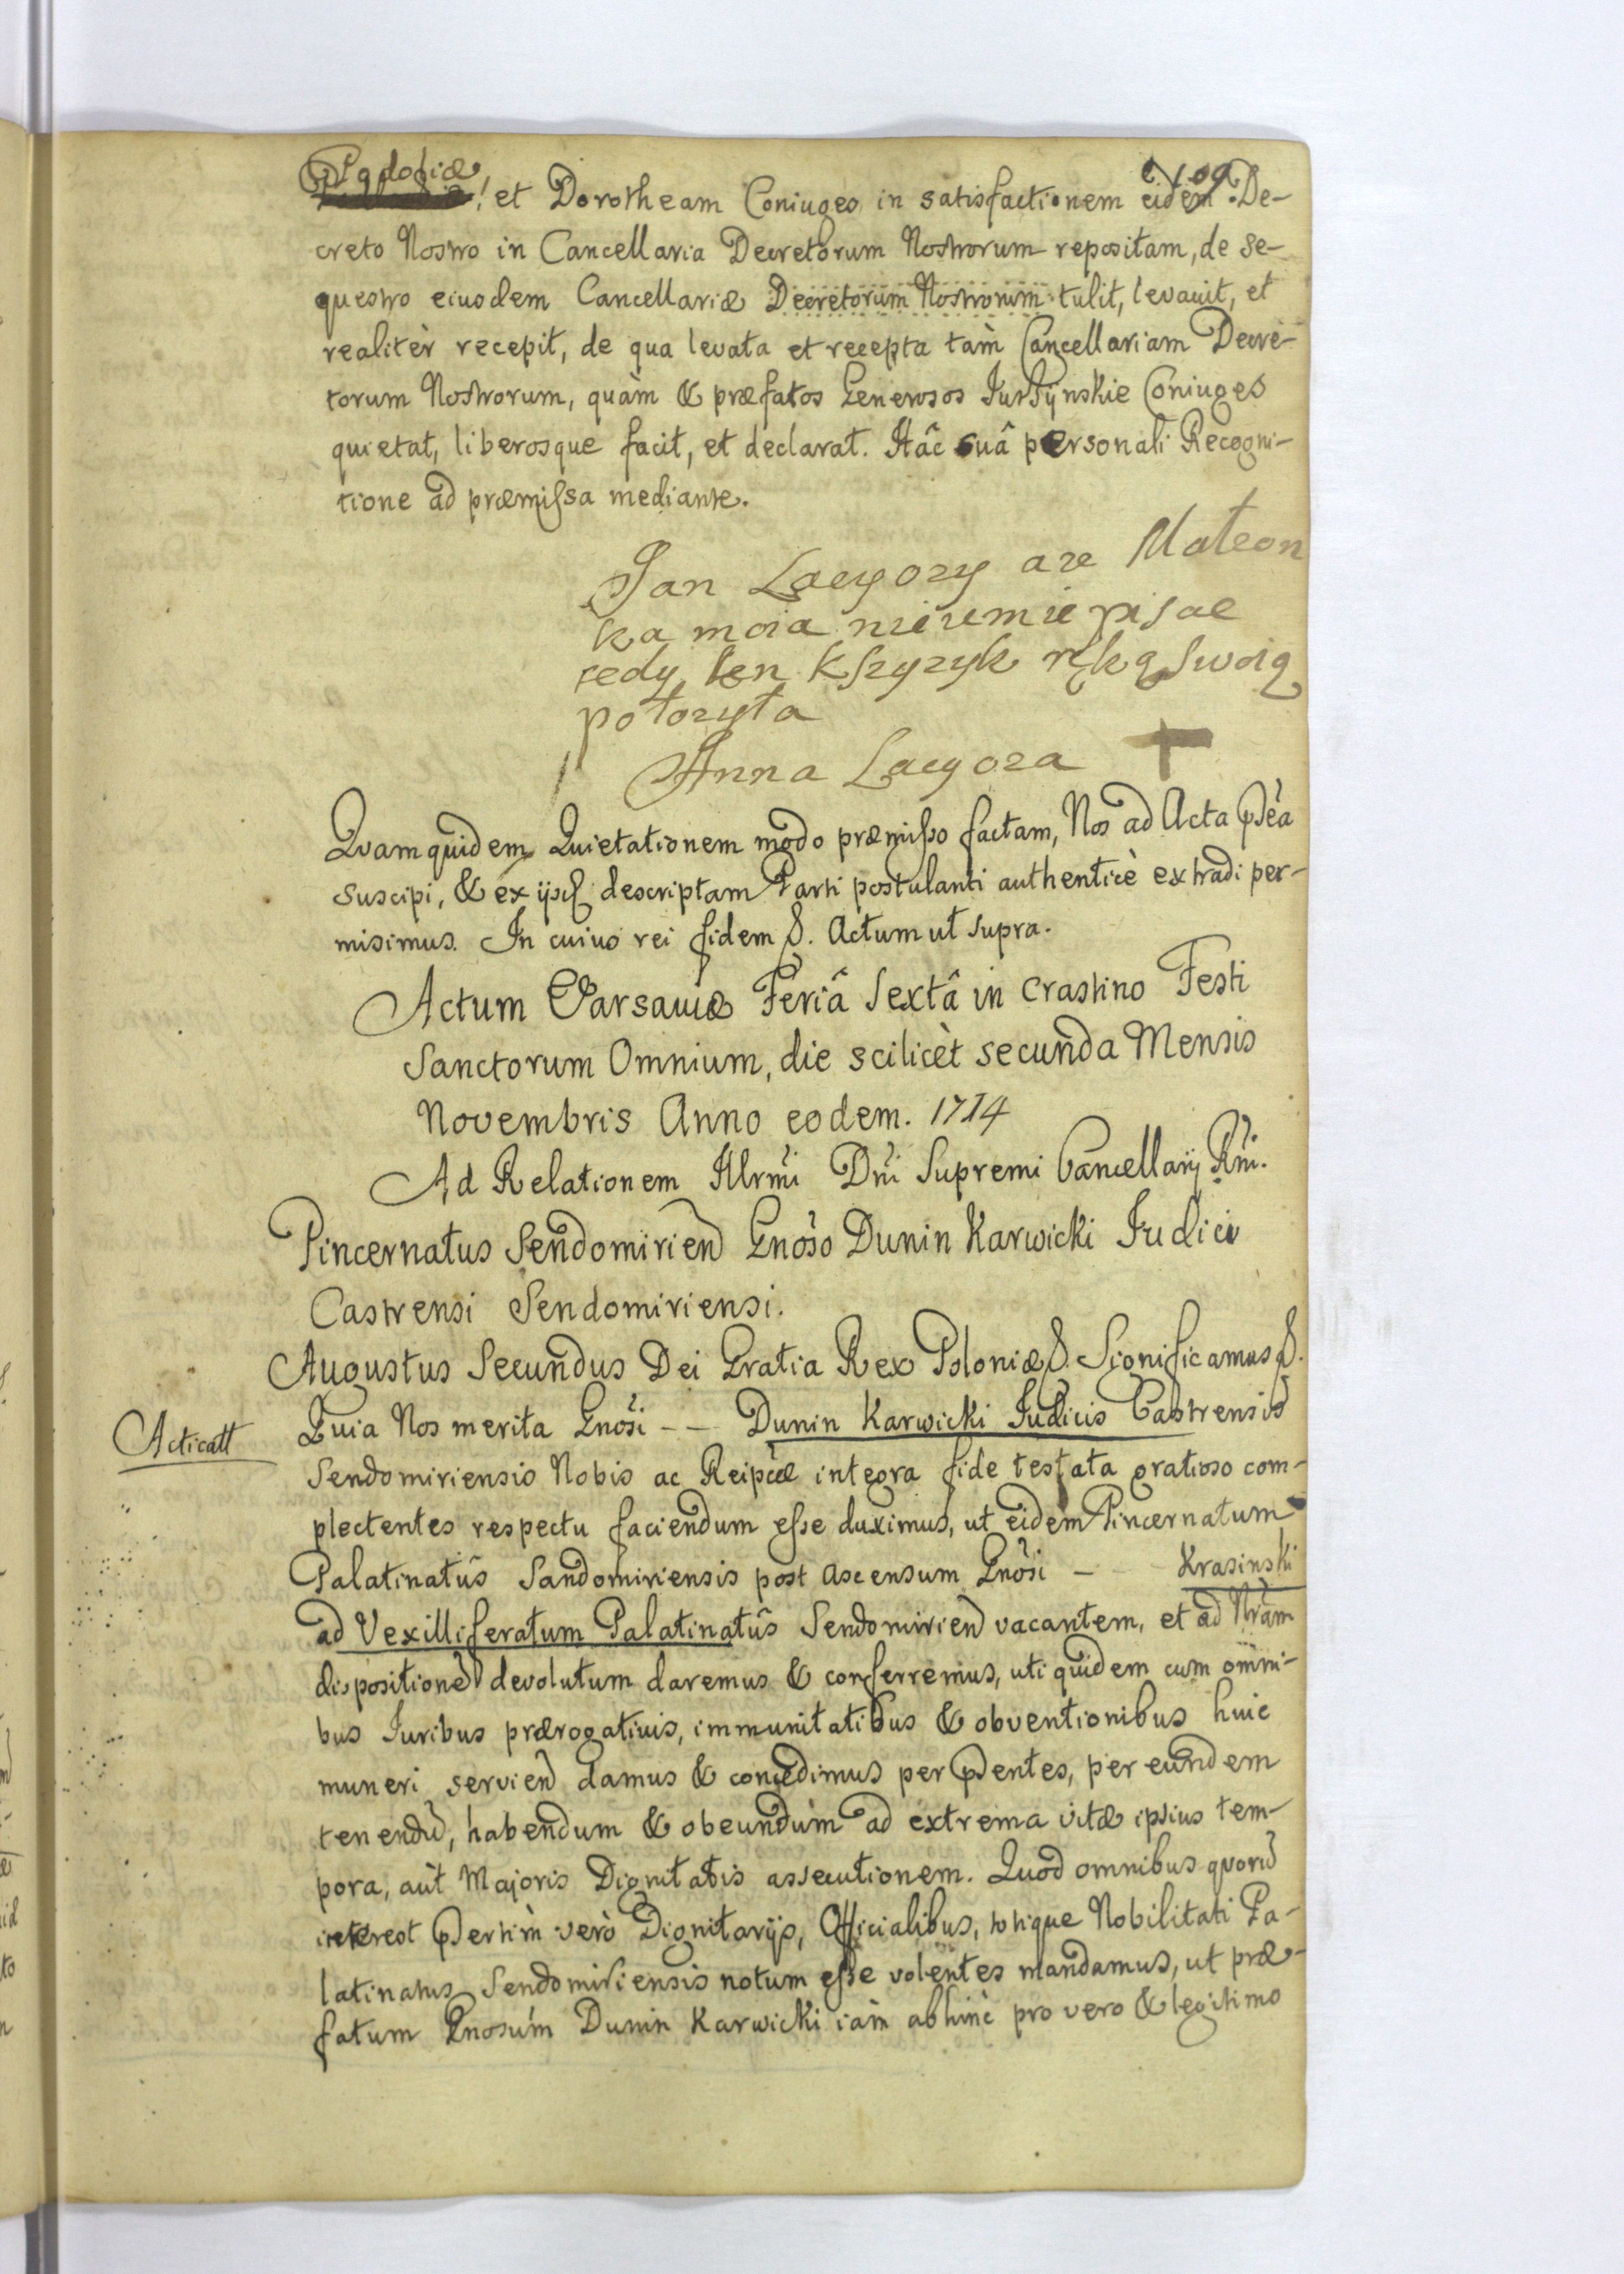 109
Podoliæ
et Dorotheam Coniuges in satisfactionem eidem De-
creto Nostro in Cancellaria Decretorum Nostrorum repositam, de se-
questro eiusdem Cancellariæ Decretorum Nostrorum tulit, levavit, et
realitèr recepit, de qua levata et recepta tàm Cancellariam Decre-
torum Nostrorum, quàm & præfatos Generosos Coniuges
quietat, liberosque facit, et declarat. Hâc suâ personali Recogni-
tione ad præmissa mediante.
Jan aze Małzon
ka moia nieumie pisac
tedy ten kszyzyk ręką swoią
połozyła
Anna +
Quamquidem Quietationem modo præmisso factam, Nos ad Acta pñtia
suscipi, & ex ijsd descriptam Parti postulanti authenticè extradi per-
misimus. In cuius rei fidem &. Actum ut supra.
Actum Varsaviæ Feriâ Sextâ in Crastino Festi
Sanctorum Omnium, die scilicèt secunda Mensis
Novembris Anno eodem. 1714
Ad Relationem Illrmi Dni Supremi Cancellarij Rni.
Pincernatus Sendomirien Gnoso Dunin Karwicki Judici
Castrensi Sendomiriensi.
Augustus Secundus Dei Gratia Rex Poloniæ &. Significamus &.
Acticatt
Quia Nos merita Gnosi -- Dunin Karwicki Judicis Castrensis
Sendomiriensis Nobis ac Reipcæ integra fide testata gratioso com-
plectentes respectu faciendum esse duximus, ut eidem Pincernatum
Palatinatûs Sandomiriensis post ascensum Gnosi - Krasinski
ad Vexilliferatum Palatinatûs Sendomirien vacantem, et ad Nram
dispositione devolutum daremus & conferremus, uti quidem cum omni-
bus Juribus prærogativis, immunitatibus & obventionibus huic
muneri servien damus & concedimus per pñtes, per eundem
tenendu, habendum & obeundum ad extrema vitæ ipsius tem-
pora, aut Majoris Dignitatis assecutionem. Quod omnibus quoru
interest psertim verò Dignitarijs, Officialibus, totique Nobilitati Pa-
latinatus Sendomiriensis notum esse volentes mandamus, ut præ-
fatum Gnosum Dunin Karwicki iàm abhinc pro vero & legitimo